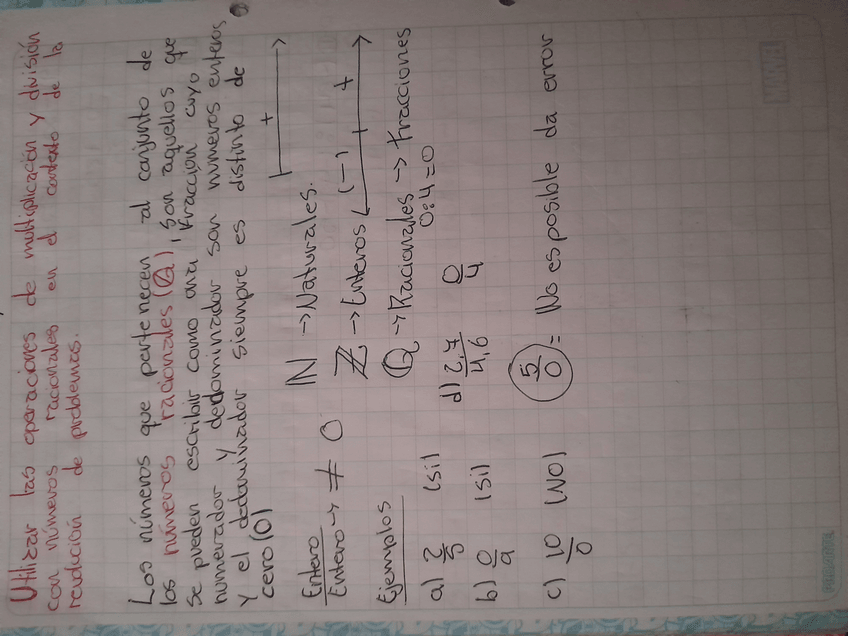 Utilizar las operaciones de multiplicación y división
con números racionales en el contexto de la
resolución de problemas.
Los números que pertenecen al conjunto de
los números racionales (Q), son aquellos que
se pueden escribir como una fracción cuyo
numerador y denominador son numeros enteros,
y el denominador siempre es distinto de
cero (0)
Entero
Entero → ≠ 0
N → Naturales. +
Z → Enteros (-) + +
Q → Racionales → Fracciones
0:4=0
Ejemplos
a) 2/5 (si)
b) 0/9 (si)
c) 10/0 (NO)
d) 2,7/4,6 0/4
5/0 = No es posible da error
MARVEL